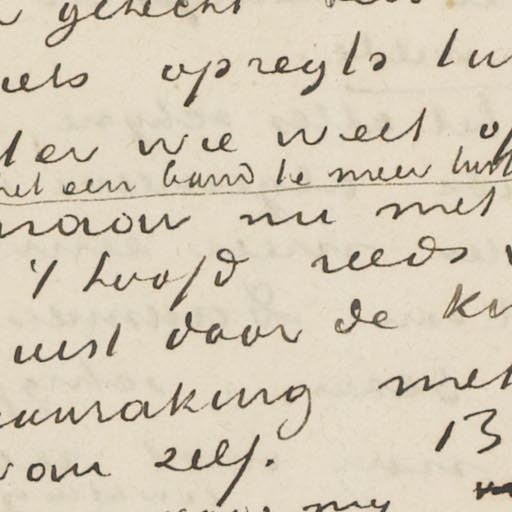 gehecht
iets opregts tu
ter wie weet of
met een band te meer
maar nu met
't hoofd reeds
uist door de
aanraking met
van zelf. 13
my